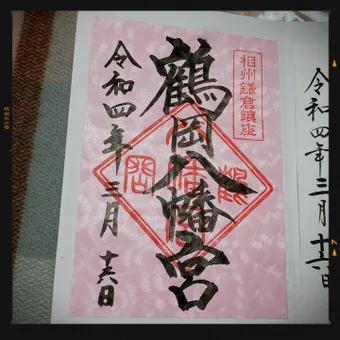 令和四年三月十六日
相州鎌倉鎮座
鶴岡八幡宮
令和四年三月十六日